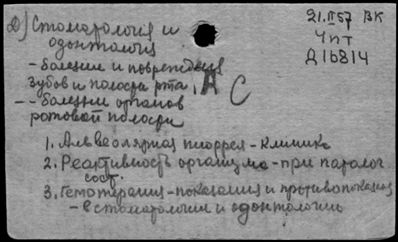 Д) Стоматология и
одонтология
- болезни и повреждения
зубов и полости рта, А С
-- болезни органов
ротовой полости
21.II57 ВК
Чпт
Д16814
1. Альвеолярная пиоррея - клиника
2. Реактивность организма - при патолог
сост.
3. Гемотерапия - показания и противопоказания
- в стоматологии и одонтологии